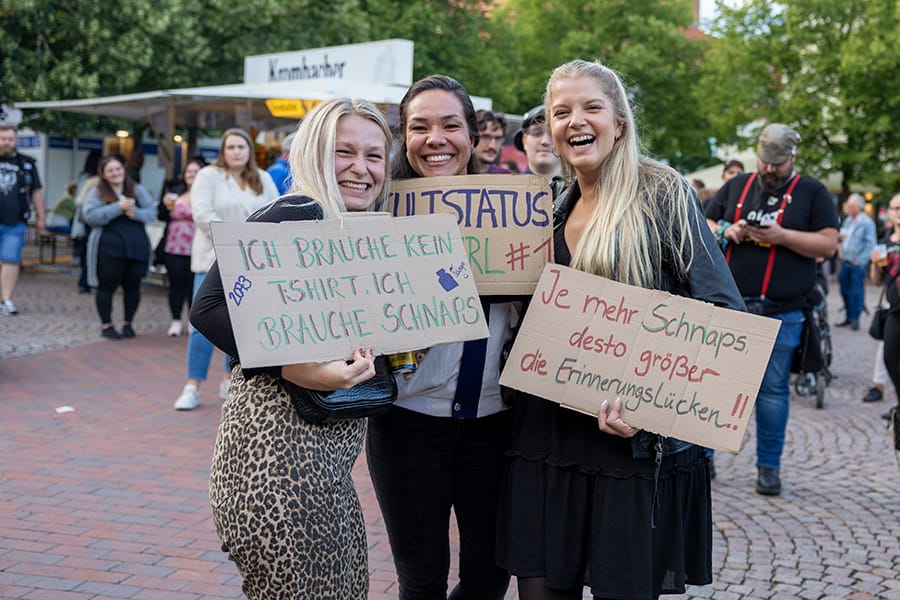 Krombacher
ICH BRAUCHE KEIN
TSHIRT ICH
BRAUCHE SCHNAPS
2003
ULTSTATUS
RL #1
Je mehr Schnaps,
desto größer
die Erinnerungslücken..!!